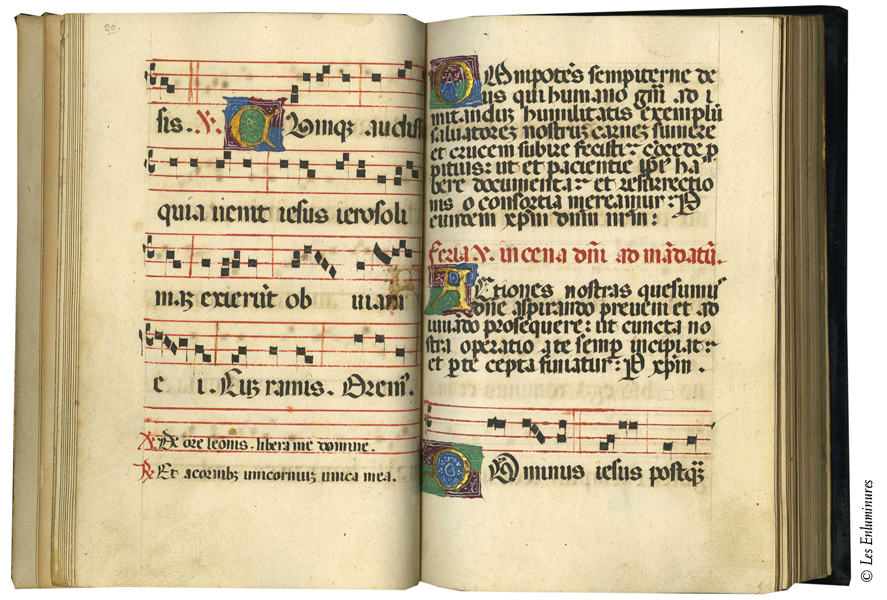 20.
sis. V. Cumq audiss
quia venit iesus ierosoli
maz exierūt ob uiam
e i. Cuz ramis. Orem9.
V De ore leonis. libera me domine.
R Et a cornibz unicornuz unica mea.
OMnipotēs sempiterne de
us qui humano gñi ad i
mitanduz humilitatis exemplū
saluatorez nostruz carnez sumere
et crucem subire fecisti: cōcede p
pitius: ut et pacientie ipī ha
bere documenta: et resurrectio
nis consortia mereamur: P
eundem xpm dnm nrm:
Feria V. in cena dñi ad mādatū.
ACtiones nostras quesumus
dñe aspirando preueni et ad
iuuādo prosequere: ut cuncta no
stra operatio a te semp incipiat:
et p te cepta finiatur: P xpm.
DOminus iesus postqz
© Les Enluminures